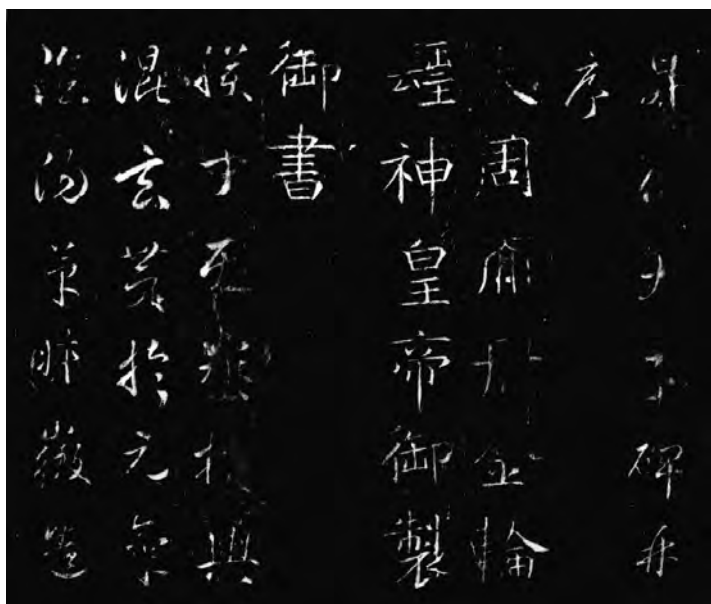 昇仙太子碑并
序
大周天冊金輪
聖神皇帝御製
御書
朕聞天地權輿
混玄黃於元氣
陰陽草昧徵造